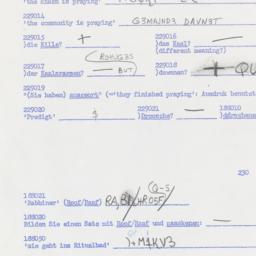 229014
'the community is praying' G3MAJND3 DAVN3T
229015
)die Kille? +
229016
)das Kaal? —
(different meaning?)
229017
)der — BUT)
229018
)dawnen? + QU
229019
"(Sie haben) ('they finished praying': Ausdruck benutzt
229020
'Predigt' $
229021
)Droosche? —
188010
230
188021
'Rabbiner' (Roof/Raaf)
188020
Bilden Sie einen Satz mit Roof/Raaf und paaskenen: —
188030
'sie geht ins Ritualbad' )+M1KV3